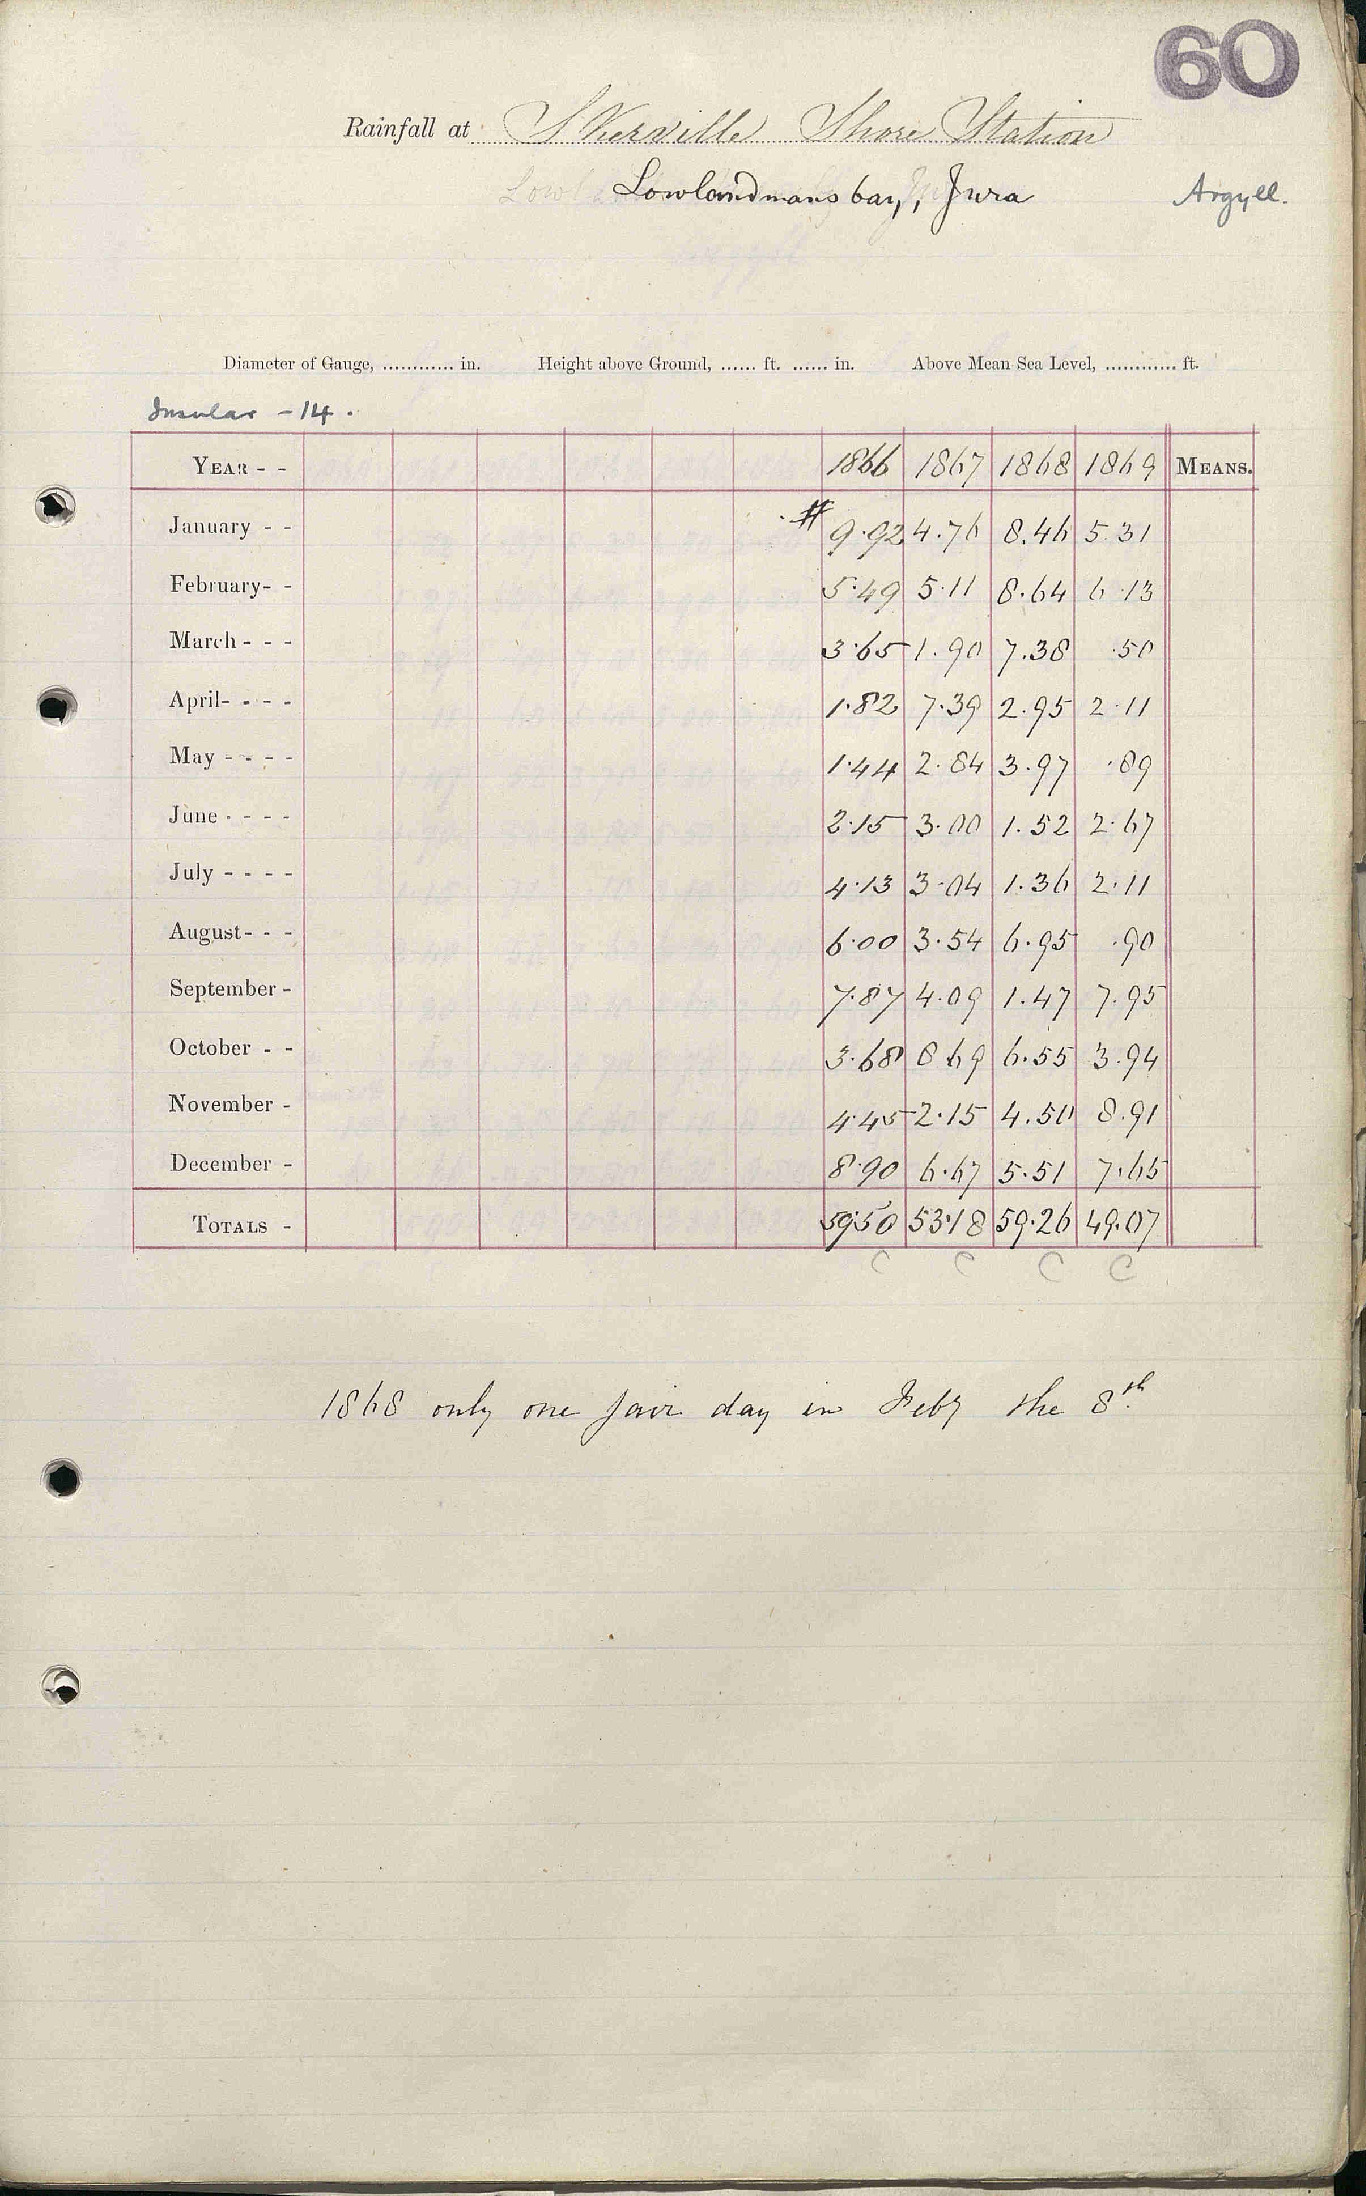 60
Rainfall at Skerville Shore Station
Lowlandmans bay, Jura Argyll.
Diameter of Gauge, ............ in. Height above Ground, ...... ft. ...... in. Above Mean Sea Level, ............ ft.
Insular - 14.
YEAR - - 1866 1867 1868 1869 MEANS.
January - - # 9.92 4.76 8.46 5.31
February- - 5.49 5.11 8.64 6.13
March - - - 3.65 1.90 7.38 .50
April- - - - 1.82 7.39 2.95 2.11
May - - - - 1.44 2.84 3.97 .89
June - - - - 2.15 3.00 1.52 2.67
July - - - - 4.13 3.04 1.36 2.11
August- - - 6.00 3.54 6.95 .90
September - 7.87 4.09 1.47 7.95
October - - 3.68 8 69 6.55 3.94
November - 4.45 2.15 4.50 8.91
December - 8.90 6.67 5.51 7.65
TOTALS - 59.50 53.18 59.26 49.07
C C C C
1868 only one fair day in Feby the 8th